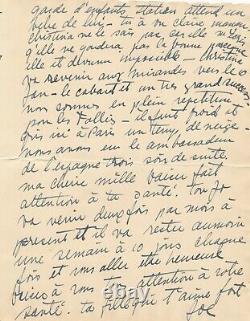 garde d'enfants Station attend un
bebe de luis - tu a vu claire mais
christina ne le sais pas, elle m'a dis
qu'elle ne gardera pas la bonne parce
elle est devenu impossible - christina
va revenir aux Mirandes vers le
Jan - le cabaret et un tres grand succes
nous sommes en plein repetition
pour les Follies - il fait froid et
gris ici à Paris un temps de neige
nous avons eu le ambassadeur
de l'espagne trois soirs de suite
ma cherie mille baisers fait
attention à ta santé. tou Jo
va venir deux fois par mois à
present et il va rester au moin
une semaine à 10 jours chaque
fois et vous allez etre heureuse
baisers à vous et attention à votre
santé. ta fille que t'aime fort